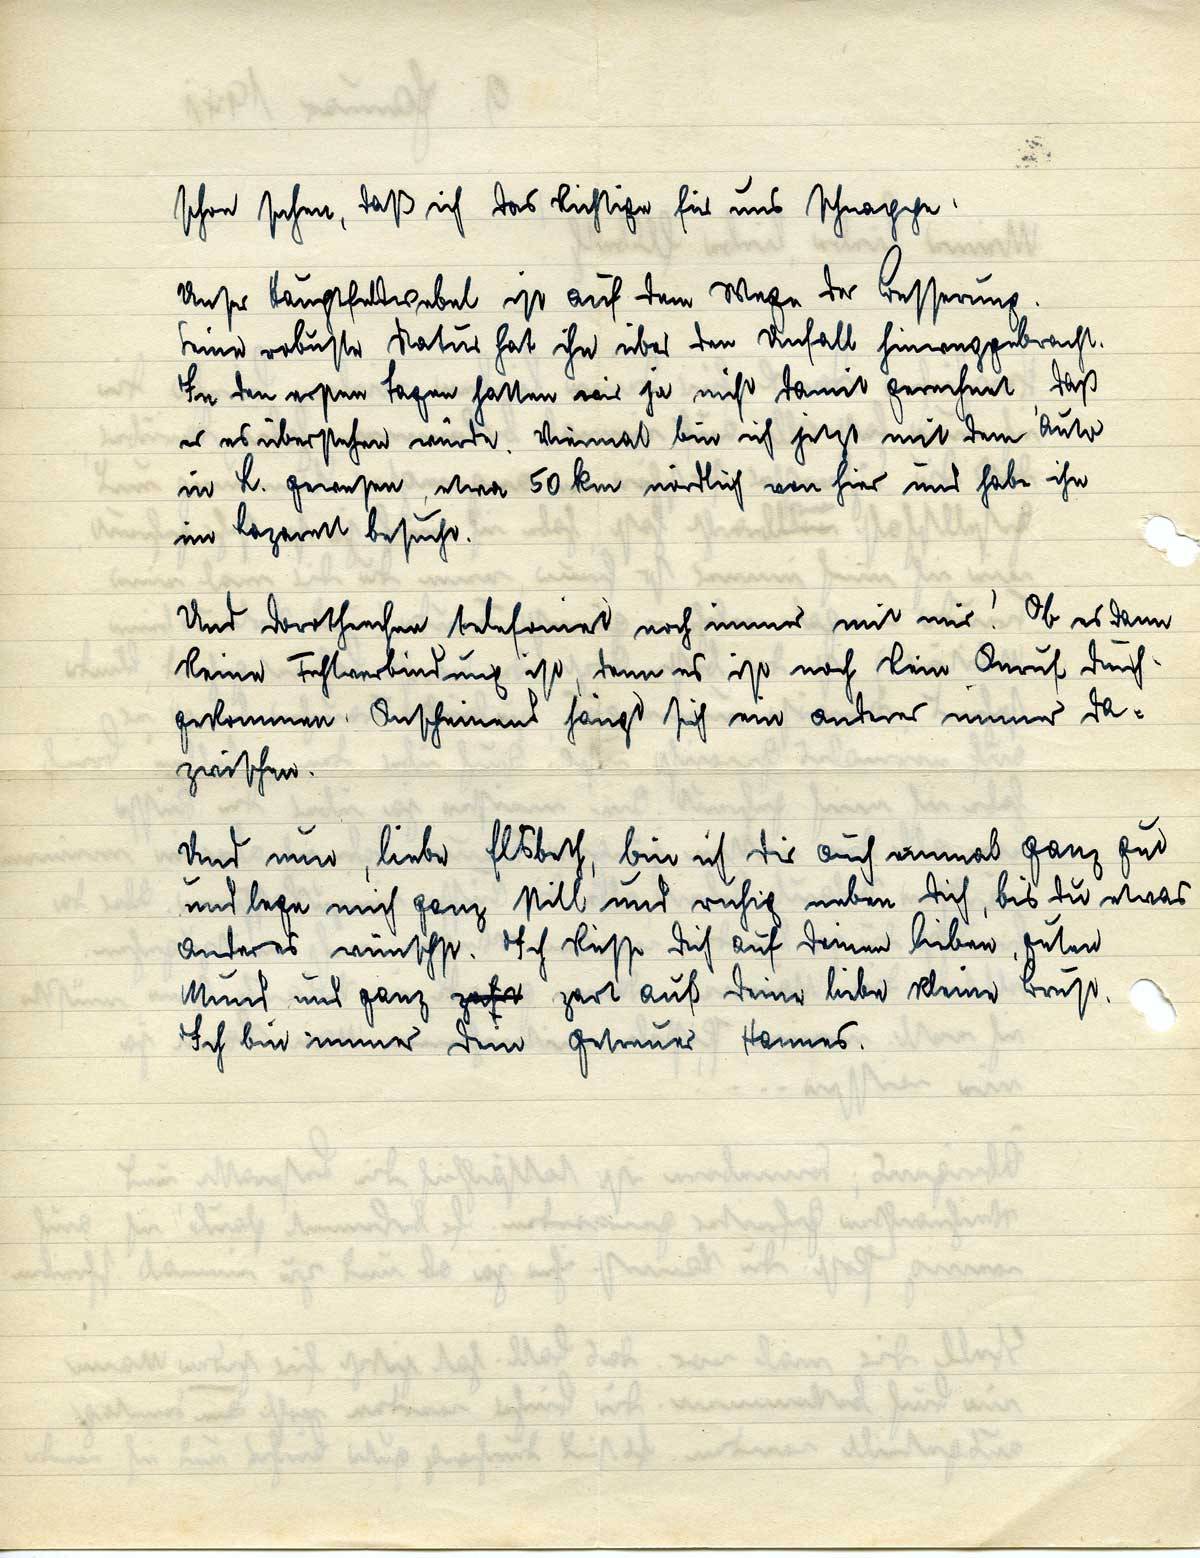 schon sehen, daß ich das Richtige für uns schnappe.
Unser Hauptfeldwebel ist auf dem Wege der Besserung.
Seine robuste Natur hat ihn über den Unfall hinweggebracht.
In den ersten Tagen hatten wir ja nicht damit gerechnet, daß
er es überstehen würde. Viermal bin ich jetzt mit dem Auto
in L. gewesen, etwa 50 km nördlich von hier und habe ihn
im Lazarett besucht.
Und Dorotheachen telefoniert noch immer mit mir! Ob es dann
keine Fehlverbindung ist, denn es ist noch kein Anruf durch-
gekommen. Anscheinend hängt sich ein anderer immer da-
zwischen.
Und nun, liebe Elsbeth, bin ich dir auch einmal ganz gut
und lege mich ganz still und ruhig neben dich, bis du etwas
anderes wünschst. Ich küsse dich auf deinen lieben, guten
Mund und ganz zart auf deine liebe kleine Brust.
Ich bin immer dein getreuer Hannes.